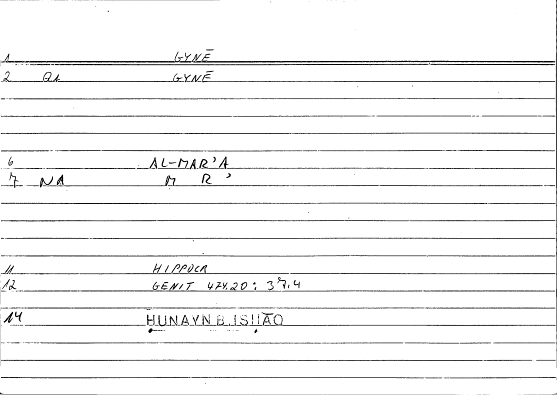 1 GYNĒ
2 Q1 GYNĒ
6 AL-MAR'A
7 NA M R '
11 HIPPOCR
12 GENIT 474.20: 37.4
14 ḤUNAYN B. ISḤĀQ